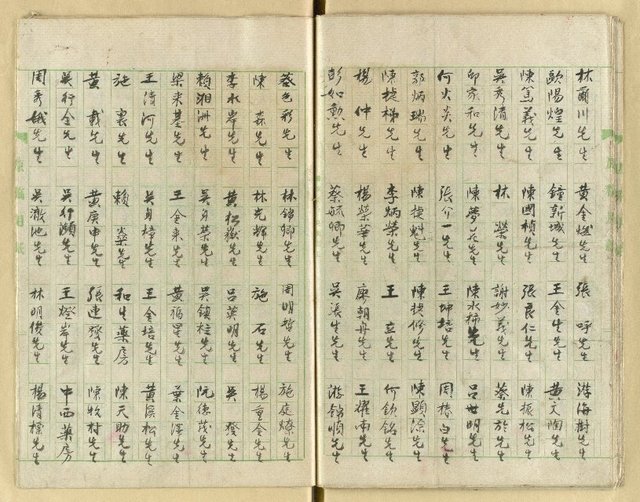 林爾川先生 黃金燧先生 張 呼先生 游海樹先生
歐陽煌先生 鐘新城先生 王金生先生 黃文陶先生
陳篤義先生 陳國楨先生 張良仁先生 陳振松先生
吳秀清先生 林 榮先生 謝妙義先生 蔡先於先生
邱家和先生 陳夢花先生 陳水柿先生 呂世明先生
何火炎先生 張介一先生 王坤培先生 周 先生
郭炳瑞先生 陳捷魁先生 陳横修先生 陳顯淙先生
陳捷梯先生 李炳榮先生 王 立先生 何欽銘先生
楊 仲先生 楊榮華先生 廖朝丹先生 王耀南先生
彭如勳先生 蔡毓卿先生 吳漲生先生 游錦順先生
蔡色彩先生 林錦卿先生 周明哲先生 施庭燎先生
陳 森先生 林光輝先生 施 石先生 楊章金先生
李水岸先生 黃松嶽先生 呂英明先生 吳 發先生
賴湘洲先生 吳身榮先生 吳鎮柱先生 阮德茂先生
梁來基先生 王金來先生 黃福星先生 葉金澤先生
王清河先生 吳身培先生 王金培先生 黃宸松先生
施 裏先生 賴 燊先生 和生藥房 陳天助先生
黃 載先生 黃庚申先生 張連發先生 陳牧村先生
吳行全先生 吳行瀨先生 王燈岸先生 中西藥房
周秀娥先生 吳激池先生 林明俊先生 楊清標先生